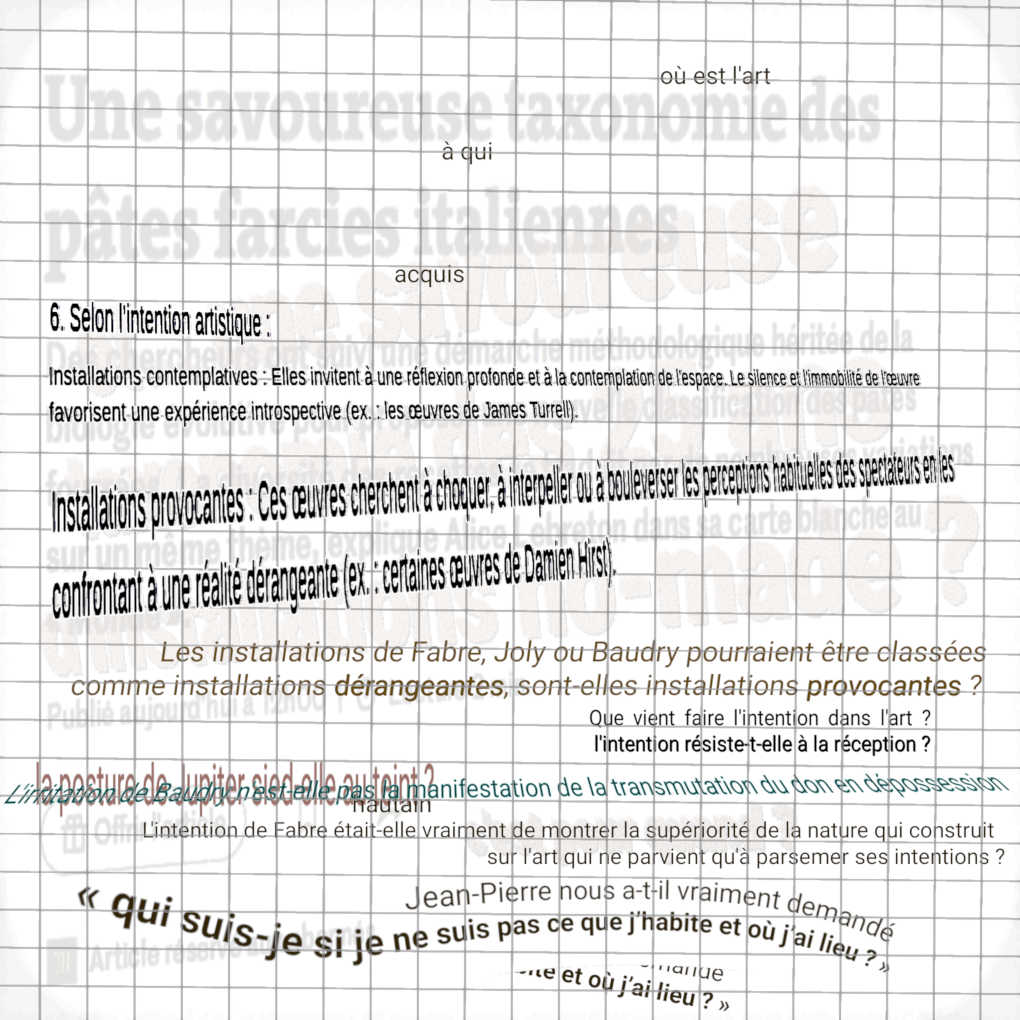 où est l'art
Une savoureuse taxonomie des
à qui
pâtes farcies italiennes
une savoureuse
acquis
6. Selon l'intention artistique :
Des chercheurs ont suivi une démarche méthodologique héritée de la
Installations contemplatives : Elles invitent à une réflexion profonde et à la contemplation de l'espace. Le silence et l'immobilité de l'œuvre
biologie évolutive pour proposer une nouvelle classification des pâtes
favorisent une expérience introspective (ex. : les œuvres de James Turrell).
variations
Installations provocantes : Ces œuvres cherchent à choquer, à interpeller ou à bouleverser les perceptions habituelles des spectateurs en les
sur un même thème, explique Alice Lebreton dans sa carte blanche au
confrontant à une réalité dérangeante (ex. : certaines œuvres de Damien Hirst).
« Monde ».
d'installations ho-made ?
Les installations de Fabre, Joly ou Baudry pourraient être classées
comme installations dérangeantes, sont-elles installations provocantes ?
Publié aujourd'hui à 12h00
Que vient faire l'intention dans l'art ?
l'intention résiste-t-elle à la réception ?
la posture de Jupiter sied-elle au teint ?
L'irritation de Baudry n'est-elle pas la manifestation de la transmutation du don en dépossession
hautain
Offrir l'article
L'intention de Fabre était-elle vraiment de montrer la supériorité de la nature qui construit
sur l'art qui ne parvient qu'à parsemer ses intentions ?
Jean-Pierre nous a-t-il vraiment demandé
« qui suis-je si je ne suis pas ce que j'habite et où j'ai lieu ? »
Article réservé aux abonnés
et où j'ai lieu ? »